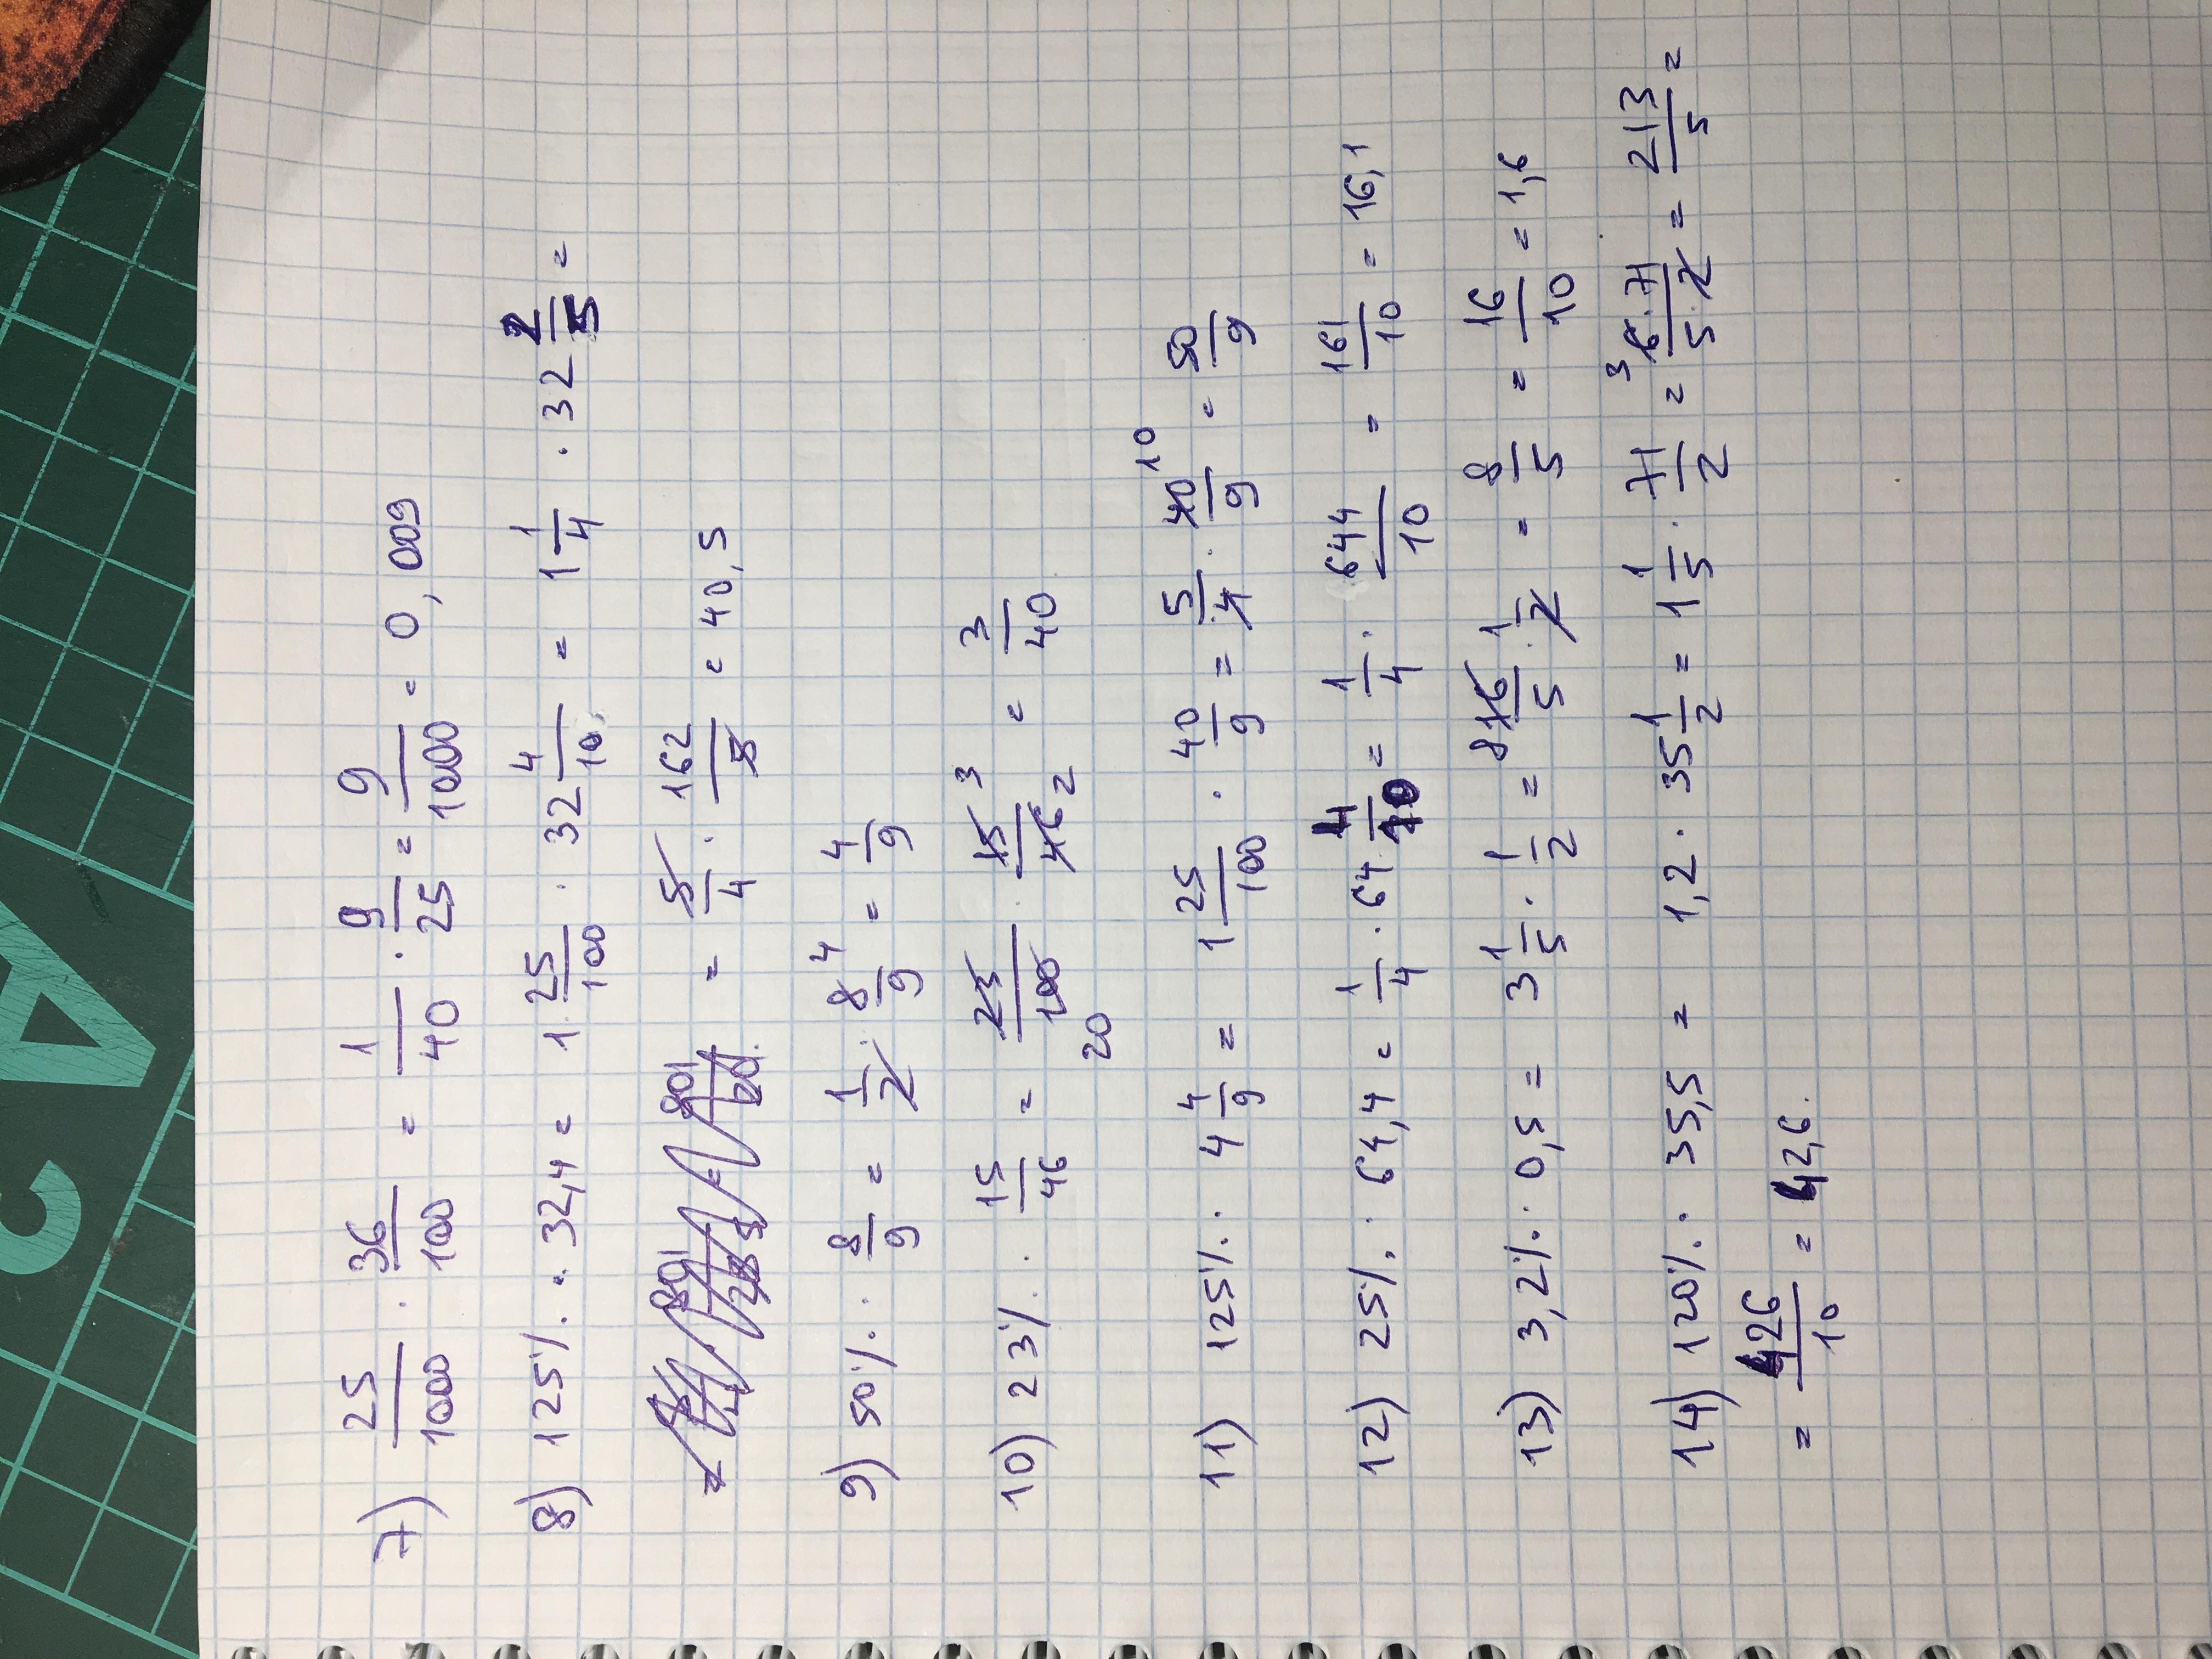 7) 25/1000 · 36/100 = 1/40 · 9/25 = 9/1000 = 0,009
8) 125% · 32,4 = 1 25/100 · 32 4/10 = 1 1/4 · 32 2/5 =
= 5/4 · 162/5 = 40,5
9) 50% · 8/9 = 1/2 · 8/9 4 = 4/9
10) 23% · 15/46 = 23/100 20 · 15 3/46 2 = 3/40
11) 125% · 4 4/9 = 1 25/100 · 40/9 = 5/4 · 40 10/9 = 50/9
12) 25% · 64,4 = 1/4 · 64 4/10 = 1/4 · 644/10 = 161/10 = 16,1
13) 3,2% · 0,5 = 3 1/5 · 1/2 = 8 16/5 · 1/2 = 8/5 = 16/10 = 1,6
14) 120% · 35,5 = 1,2 · 35 1/2 = 1 1/5 · 71/2 = 3 6·71/5·2 = 213/5 =
= 426/10 = 42,6.